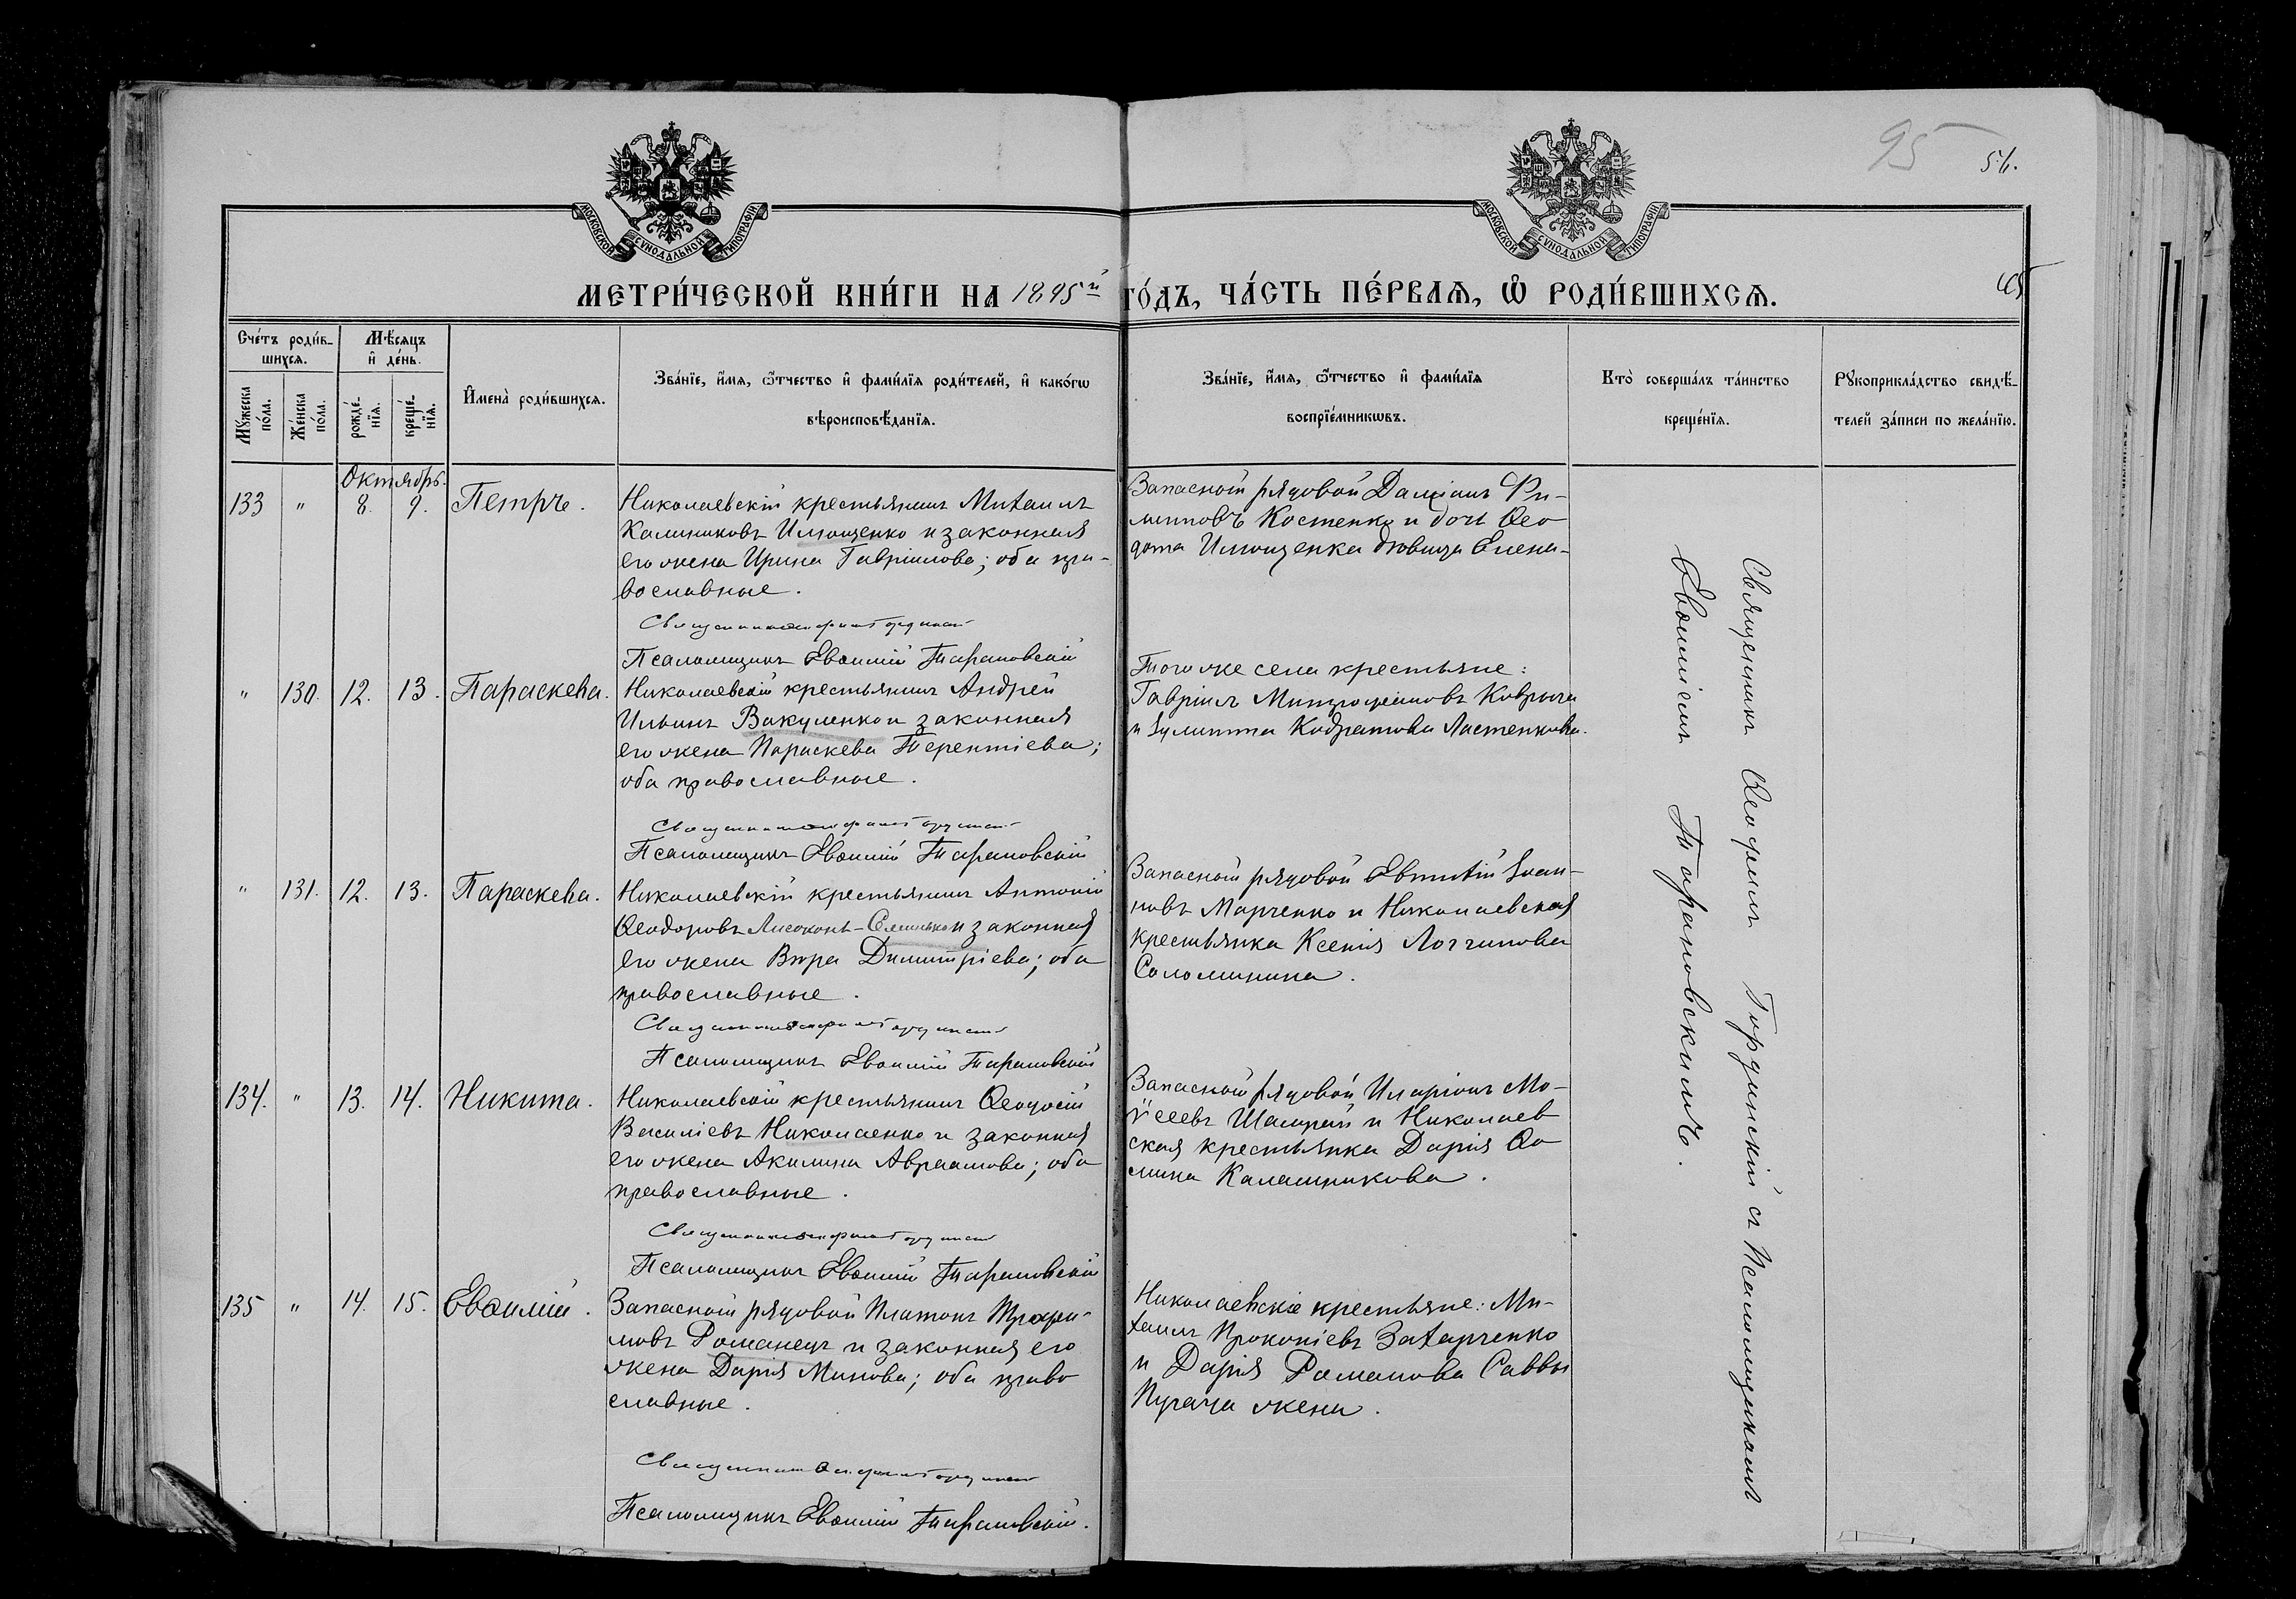 95
56.
МОСКОВСКОЙ СѴНОДАЛЬНОЙ ТИПОГРАФІИ
МОСКОВСКОЙ СѴНОДАЛЬНОЙ ТИПОГРАФІИ
МЕТРИ́ЧЕСКОЙ КНИ́ГИ НА 1895й ГО́ДЪ, ЧА́СТЬ ПЕ́РВАѦ, Ѽ РОДИ́ВШИХСѦ.
Сче́тъ роди́в-
шихсѧ.
Мѣ́сѧцъ
и҆ де́нь.
Мꙋжеска
по́ла.
Же́нска
по́ла.
рожде́-
нїѧ.
креще́-
нїѧ.
И҆мена̀ роди́вшихсѧ.
Зва́нїе, и҆́мѧ, ѻ҆́тчество и҆ фами́лїѧ роди́телей, и҆ како́гѡ
вѣроисповѣ́данїѧ.
Зва́нїе, и҆́мѧ, ѻ҆́тчество и҆ фами́лїѧ
воспрїе́мникѡвъ.
Кто̀ соверша́лъ та́инство
креще́нїѧ.
Рꙋкоприкла́дство свидѣ́-
телей за́писи по жела́нїю.
Октябрь.
133 " 8. 9. Петръ.
Николаевскій крестьянинъ Михаилъ
Калиниковъ Ильющенко и законная
его жена Ирина Гавріилова; оба пра-
вославные.
Псаломщикъ Евѳимій Тарановскій
Запасной рядовой Даміанъ Фи-
липповъ Костенко и дочь Ѳео
дота Ильющенка дѣвица Елена.
" 130. 12. 13. Параскева.
Николаевскій крестьянинъ Андрей
Ильинъ Вакуленко и законная
его жена Параскева Терентіева;
оба православные.
Псаломщикъ Евѳимій Тарановскій
Того же села крестьяне:
Гавріилъ Митрофановъ
и Іулитта Кодратова
" 131. 12. 13. Параскева.
Николаевскій крестьянинъ Антоній
Ѳеодоровъ Лисоконь- и законная
его жена Вѣра Димитріева; оба
православные.
Псаломщикъ Евѳимій Тарановскій
Запасной рядовой Евтихій Іоан-
новъ Марченко и Николаевская
крестьянка Ксенія Логгинова
Соломинина.
134. " 13. 14. Никита.
Николаевскій крестьянинъ Ѳеодосій
Василіевъ Николаенко и законная
его жена Акилина Авраамова; оба
православные.
Псаломщикъ Евѳимій Тарановскій
Запасной рядовой Иларіонъ Мо-
ѵсеевъ Шамрай и Николаев
ская крестьянка Дарія Ѳо
мина Калашникова.
135 " 14. 15. Евѳимій.
Запасной рядовой Платонъ Трофи-
мовъ Романецъ и законная его
жена Дарія Минова; оба право
славные.
Псаломщикъ Евѳимій Тарановскій.
Николаевскіе крестьяне: Ми-
хаилъ Прокопіевъ Захарченко
и Дарія Романова Саввы
Пугача жена.
Священникъ Ѳеофилъ Гордынскій съ Псаломщикомъ
Евѳиміемъ Тарановскимъ.